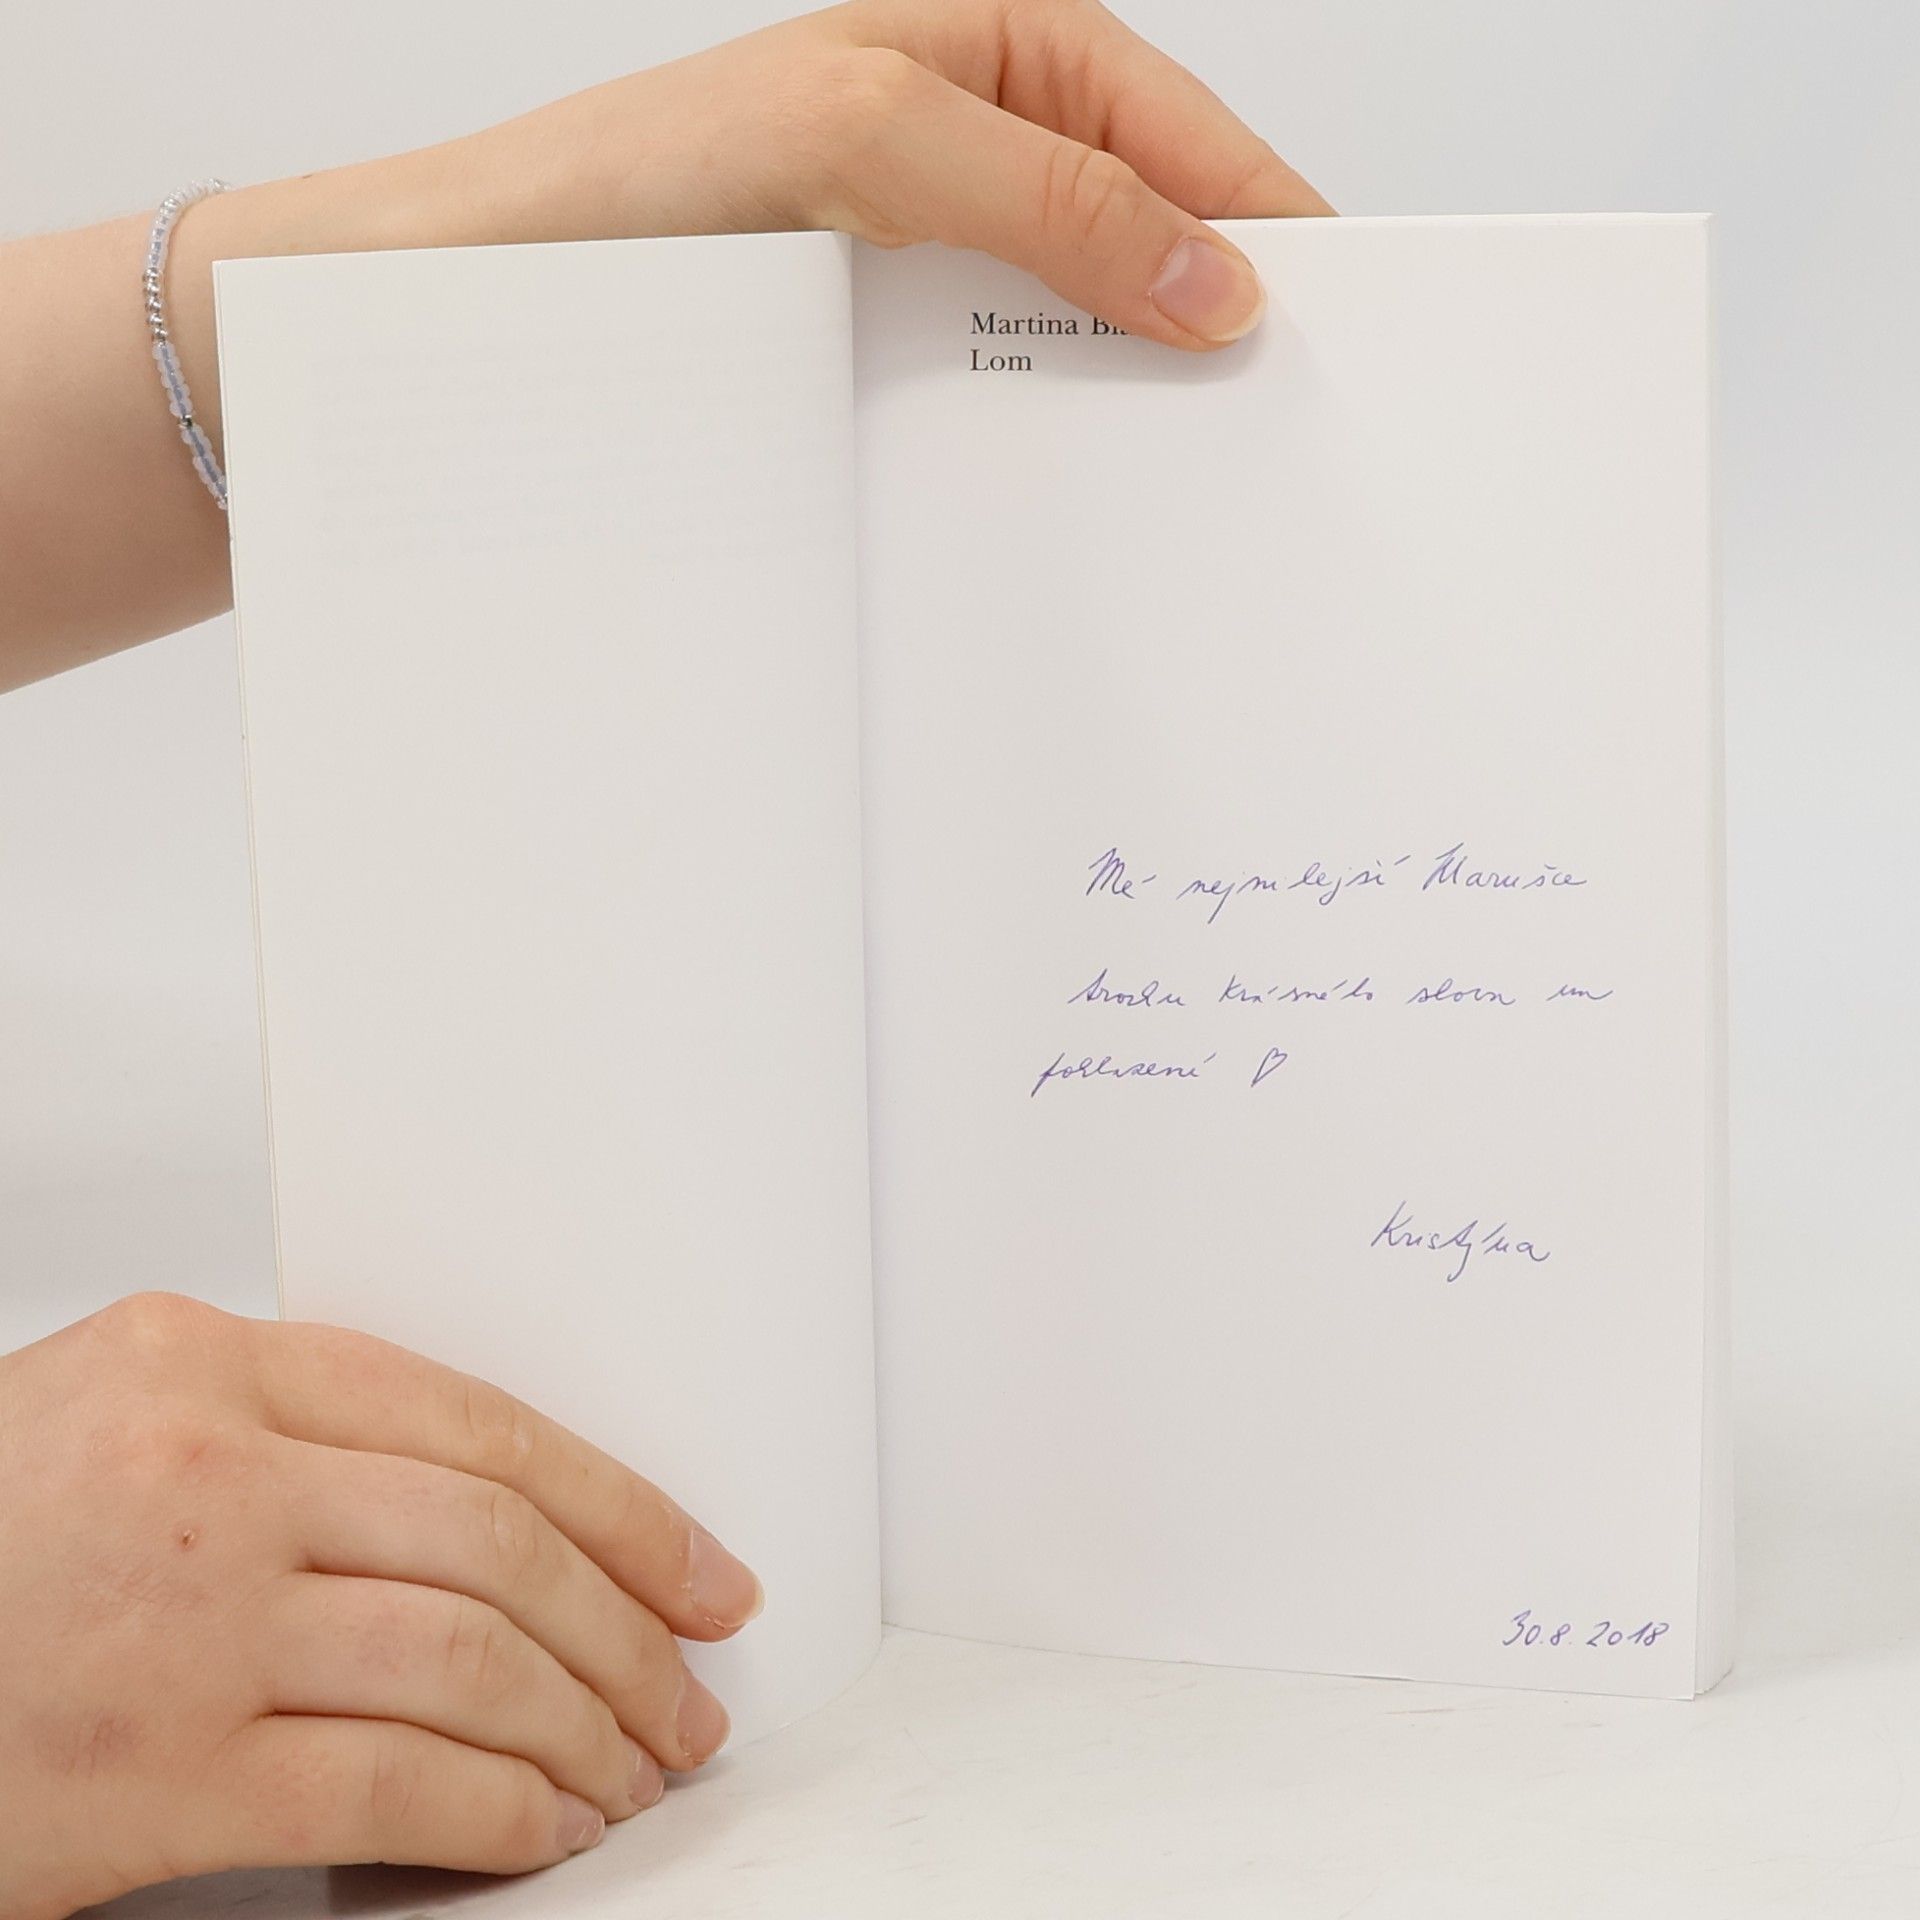 Martina
Lom
Mé nejmilejší Marušce
trochu krásného slova na
pohlazení ♡
Kristýna
30.8.2018